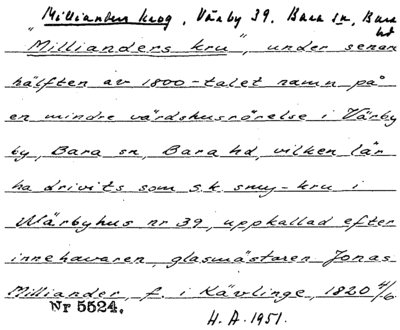 Millianders krog, Värby 39. Bara sn, Bara
hd
"Millianders kru", under senare
hälften av 1800-talet namn på
en mindre värdshusrörelse i Värby
by, Bara sn, Bara hd, vilken lär
ha drivits som s.k. smy-kru i
Wärbyhus nr 39, uppkallad efter
innehavaren, glasmästaren Jonas
Milliander, f. i Kävlinge, 1820 4/6.
Nr 5524.
H. A. 1951.